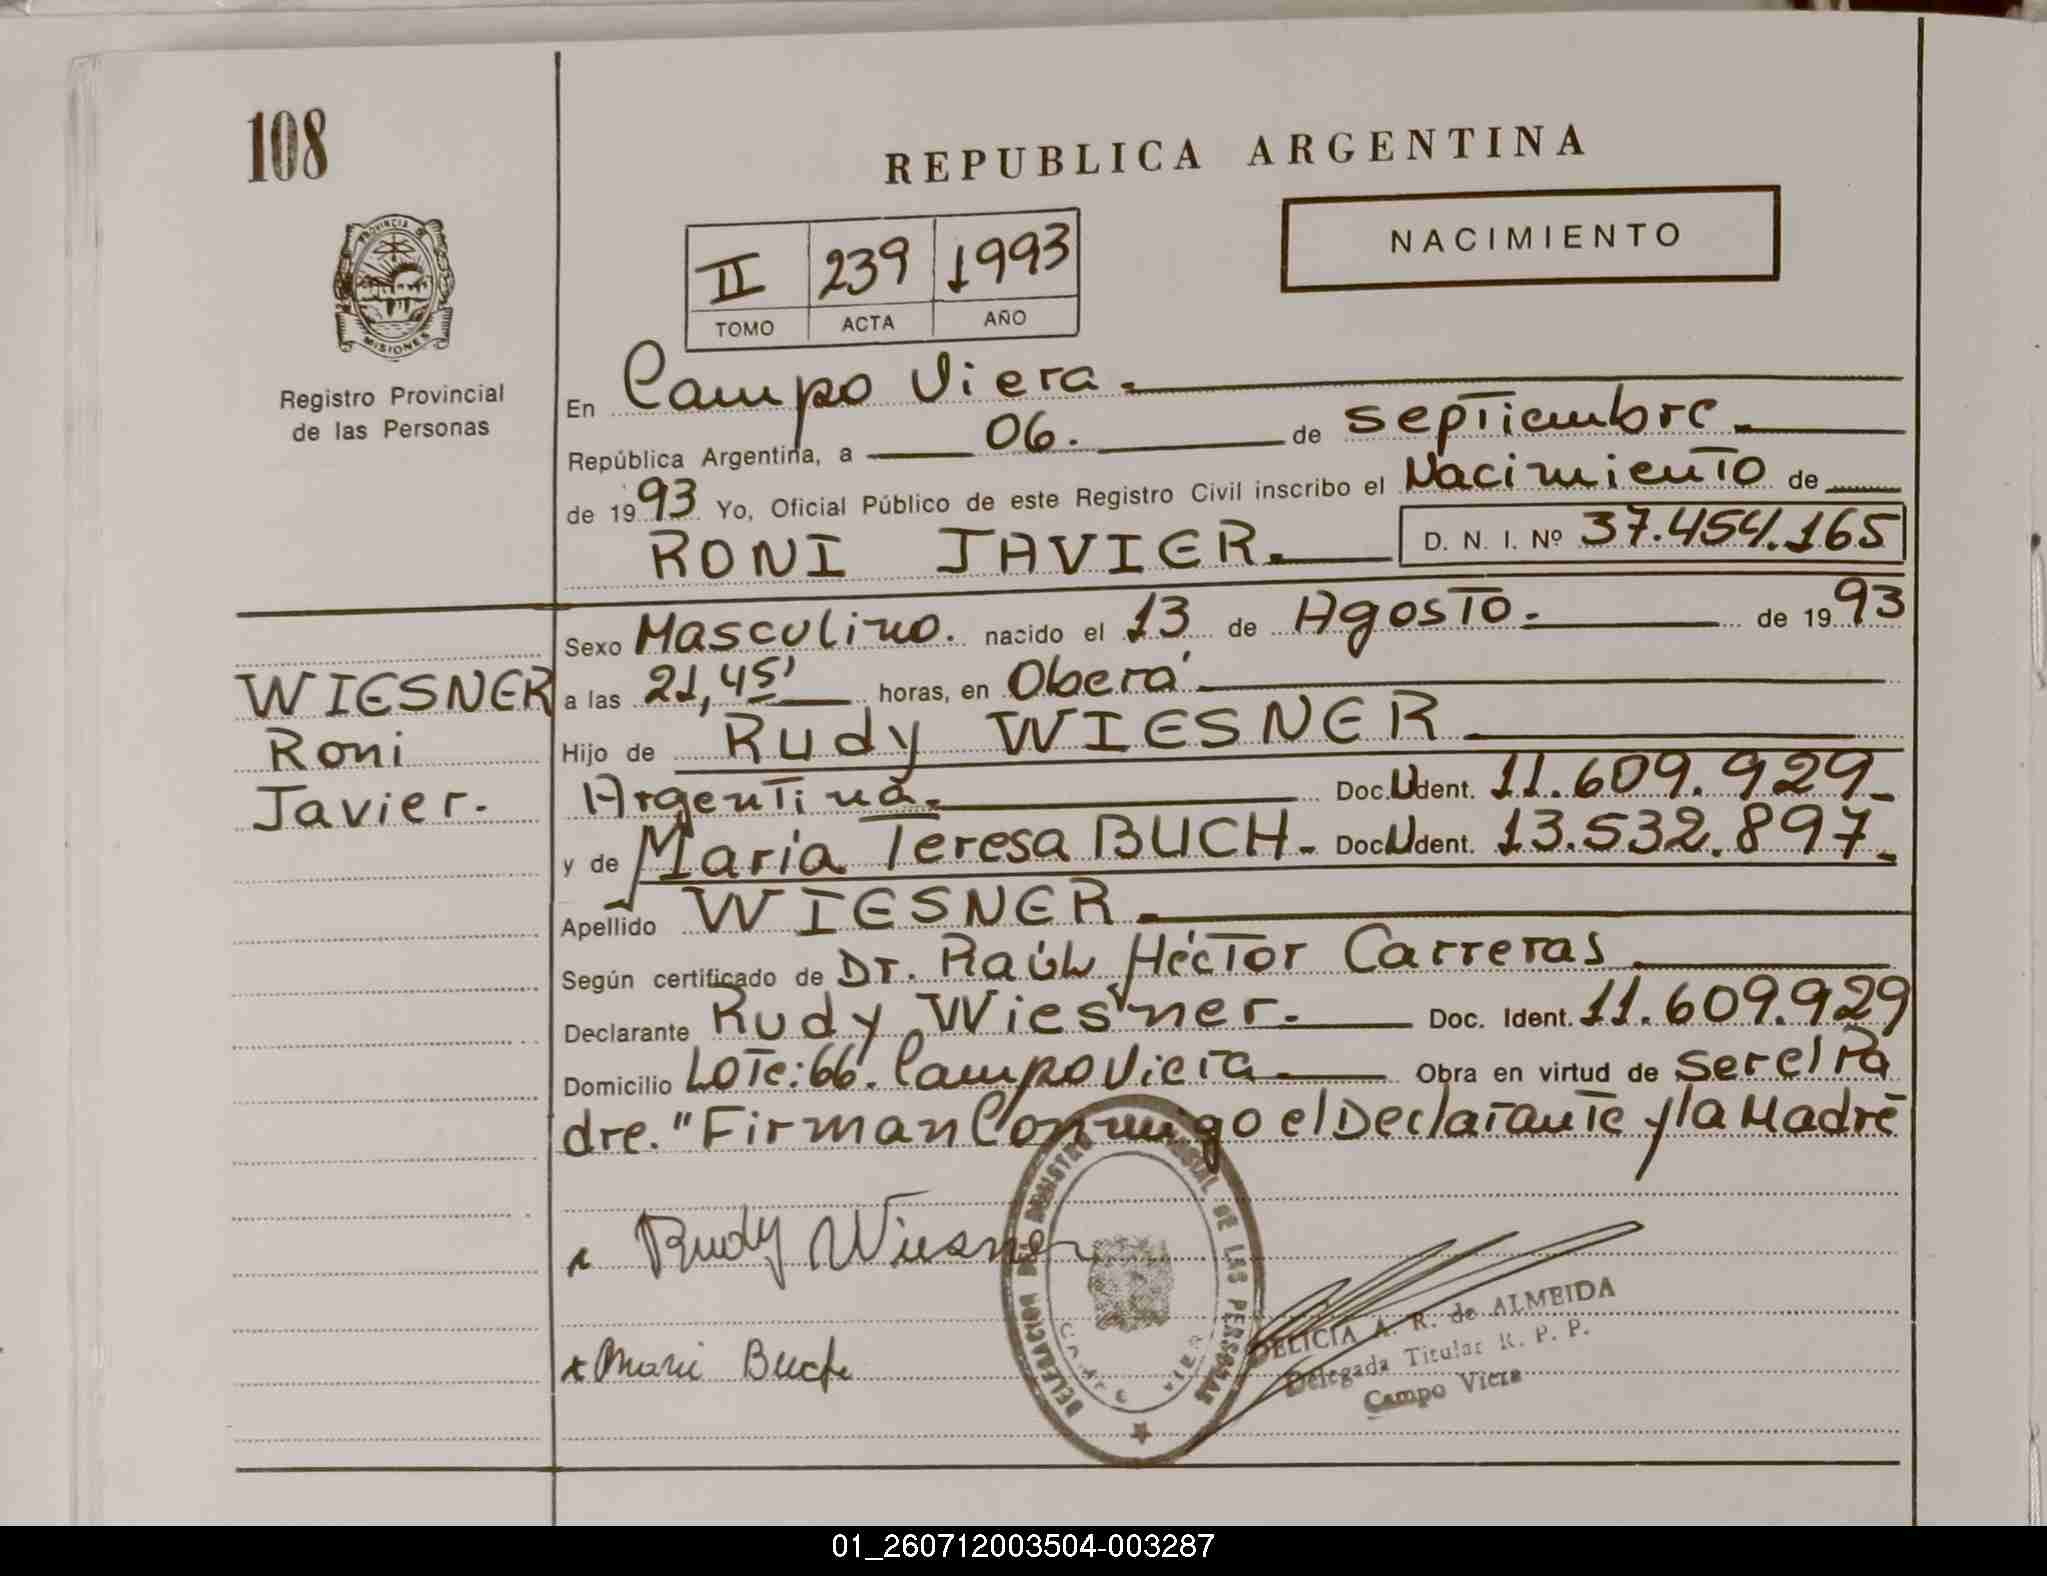 108
REPUBLICA ARGENTINA
NACIMIENTO
II 239 1993
TOMO ACTA AÑO
PROVINCIA DE
MISIONES
Registro Provincial
de las Personas
En Campo Viera.
República Argentina, a 06. de septiembre.
de 1993 Yo, Oficial Público de este Registro Civil inscribo el Nacimiento de
RONI JAVIER. D. N. I. Nº 37.454.165
Sexo Masculino. nacido el 13 de Agosto. de 1993
a las 21,45' horas, en Oberá
Hijo de Rudy WIESNER
Argentina. Doc.U Ident. 11.609.929-
y de María Teresa BUCH. Doc.U Ident. 13.532.897-
Apellido WIESNER.
Según certificado de Dr. Raúl Héctor Carreras
Declarante Rudy Wiesner. Doc. Ident. 11.609.929
Domicilio Lote: 66. Campo Viera Obra en virtud de ser el Pa
dre. "Firman Conmigo el Declarante y la Madre
WIESNER
Roni
Javier.
Rudy Wiesner
Buch
DELEGACION DEL REGISTRO PROVINCIAL DE LAS PERSONAS
CAMPO VIERA
DELICIA A. R. de ALMEIDA
Delegada Titular R. P. P.
Campo Viera
01_260712003504-003287